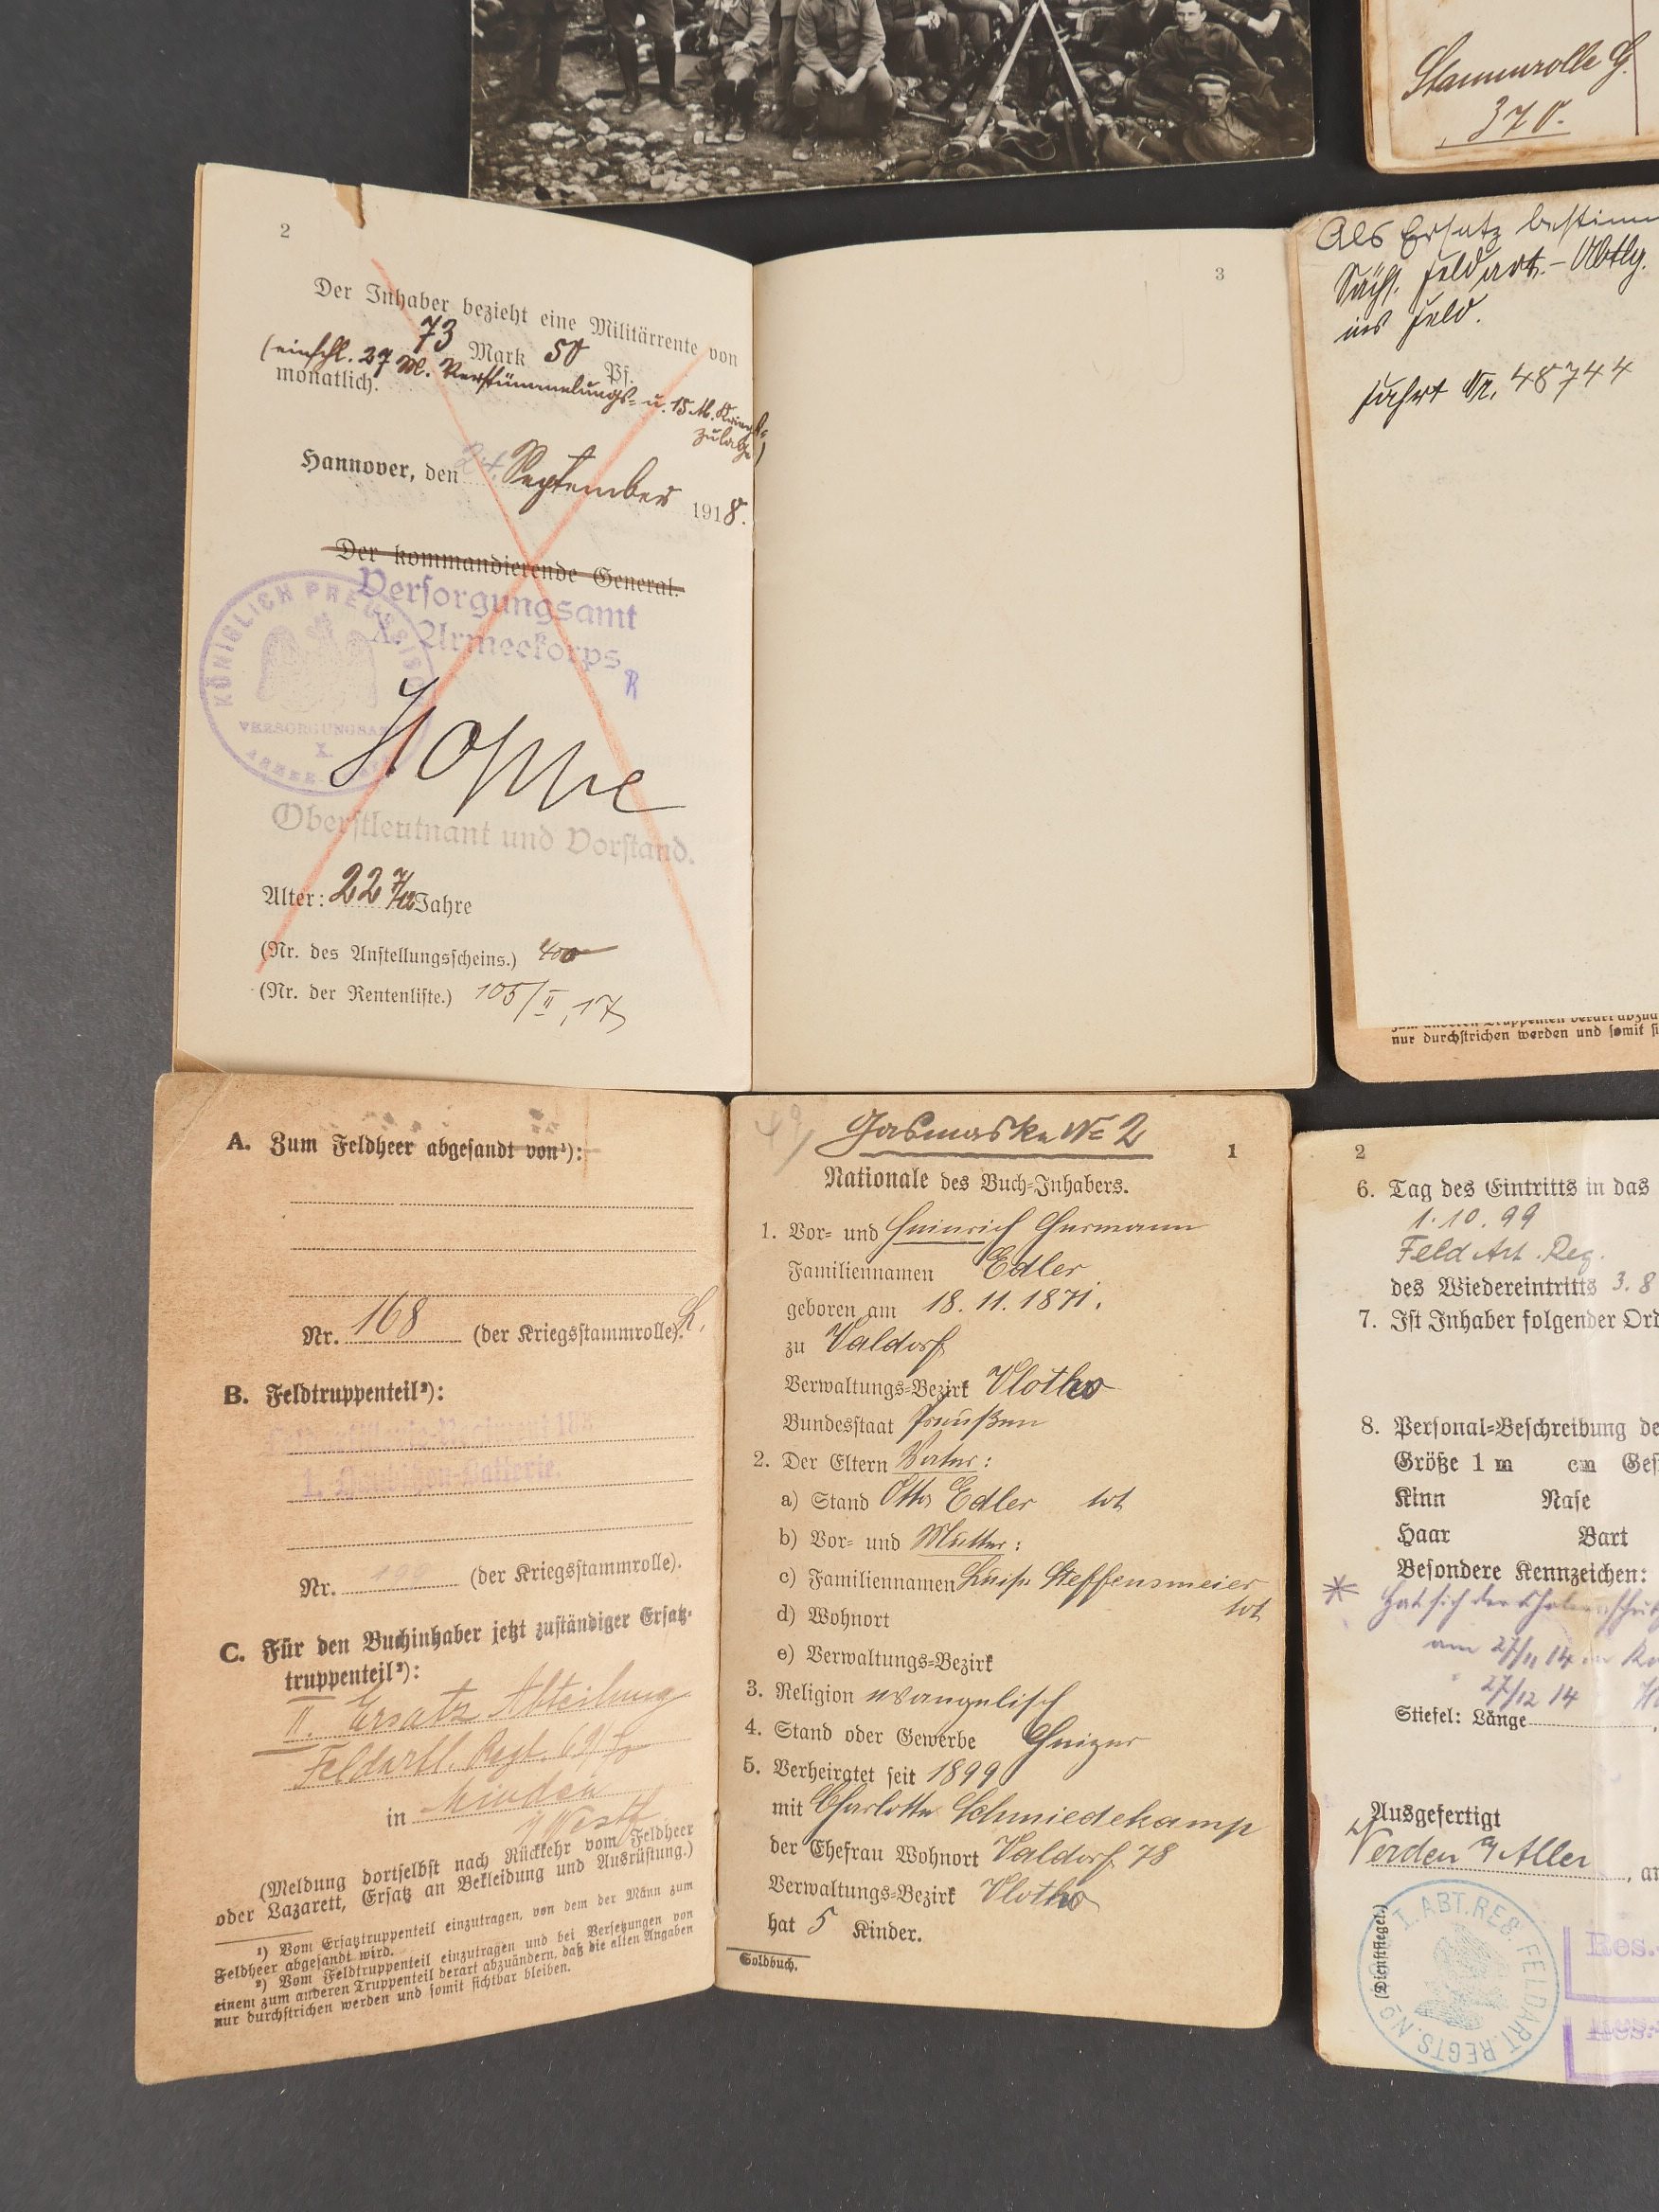 Stammrolle G.
370.
2
Der Inhaber bezieht eine Militärrente von
73 Mark 50 Pf.
(einschl. 27 M. Verstümmelungs- u. 15 M. Kriegs-
zulage)
monatlich.
Hannover, den 24. September 1918.
Der kommandierende General.
Versorgungsamt
X. Armeekorps
R
KÖNIGLICH PREUSSISCH
VERSORGUNGSAMT
X.
ARMEE
Hoppe
Oberstleutnant und Vorstand.
Alter: 22 7/12 Jahre
(Nr. des Anstellungsscheins.) 400
(Nr. der Rentenliste.) 105/II, 17
3
Als Ersatz bestimm
Sächs. Feldart.-Abtlg.
ins Feld.
Fahrt Nr. 48744
nur durchstrichen werden und somit
A. Zum Feldheer abgesandt von¹):
Nr. 168 (der Kriegsstammrolle).
B. Feldtruppenteil²):
1. Haubitzen-Batterie.
Nr. 199 (der Kriegsstammrolle).
C. Für den Buchinhaber jetzt zuständiger Ersatz-
truppenteil²):
II. Ersatz Abteilung
Feldartl. Regt.
in Minden
i/Westf.
(Meldung dortselbst nach Rückkehr vom Feldheer
oder Lazarett, Ersatz an Bekleidung und Ausrüstung.)
¹) Vom Ersatztruppenteil einzutragen, von dem der Mann zum
Feldheer abgesandt wird.
²) Vom Feldtruppenteil einzutragen und bei Versetzungen von
einem zum anderen Truppenteil derart abzuändern, daß die alten Angaben
nur durchstrichen werden und somit sichtbar bleiben.
49/
Gasmaske No 2
1
Nationale des Buch-Inhabers.
1. Vor- und Heinrich Hermann
Familiennamen Edler
geboren am 18. 11. 1871.
zu Valdorf
Verwaltungs-Bezirk Vlotho
Bundesstaat Preußen
2. Der Eltern Vater:
a) Stand Otto Edler tot
b) Vor- und Mutter:
c) Familiennamen Luise Steffensmeier
tot
d) Wohnort
e) Verwaltungs-Bezirk
3. Religion evangelisch
4. Stand oder Gewerbe Heizer
5. Verheiratet seit 1899
mit Charlotte Schmiedekamp
der Ehefrau Wohnort Valdorf 78
Verwaltungs-Bezirk Vlotho
hat 5 Kinder.
Soldbuch.
2
6. Tag des Eintritts in das
1.10.99
Feld Art. Reg.
des Wiedereintritts 3. 8
7. Ist Inhaber folgender Ord
8. Personal-Beschreibung de
Größe 1 m cm Ges
Kinn Nase
Haar Bart
Besondere Kennzeichen:
* Hat sich der
am 27/11 14
27/12 14
Stiefel: Länge
Ausgefertigt
Verden a/Aller, an
(Dienstsiegel.)
I. ABT. RES. FELDART. REGTS. NO
Res.
Res.